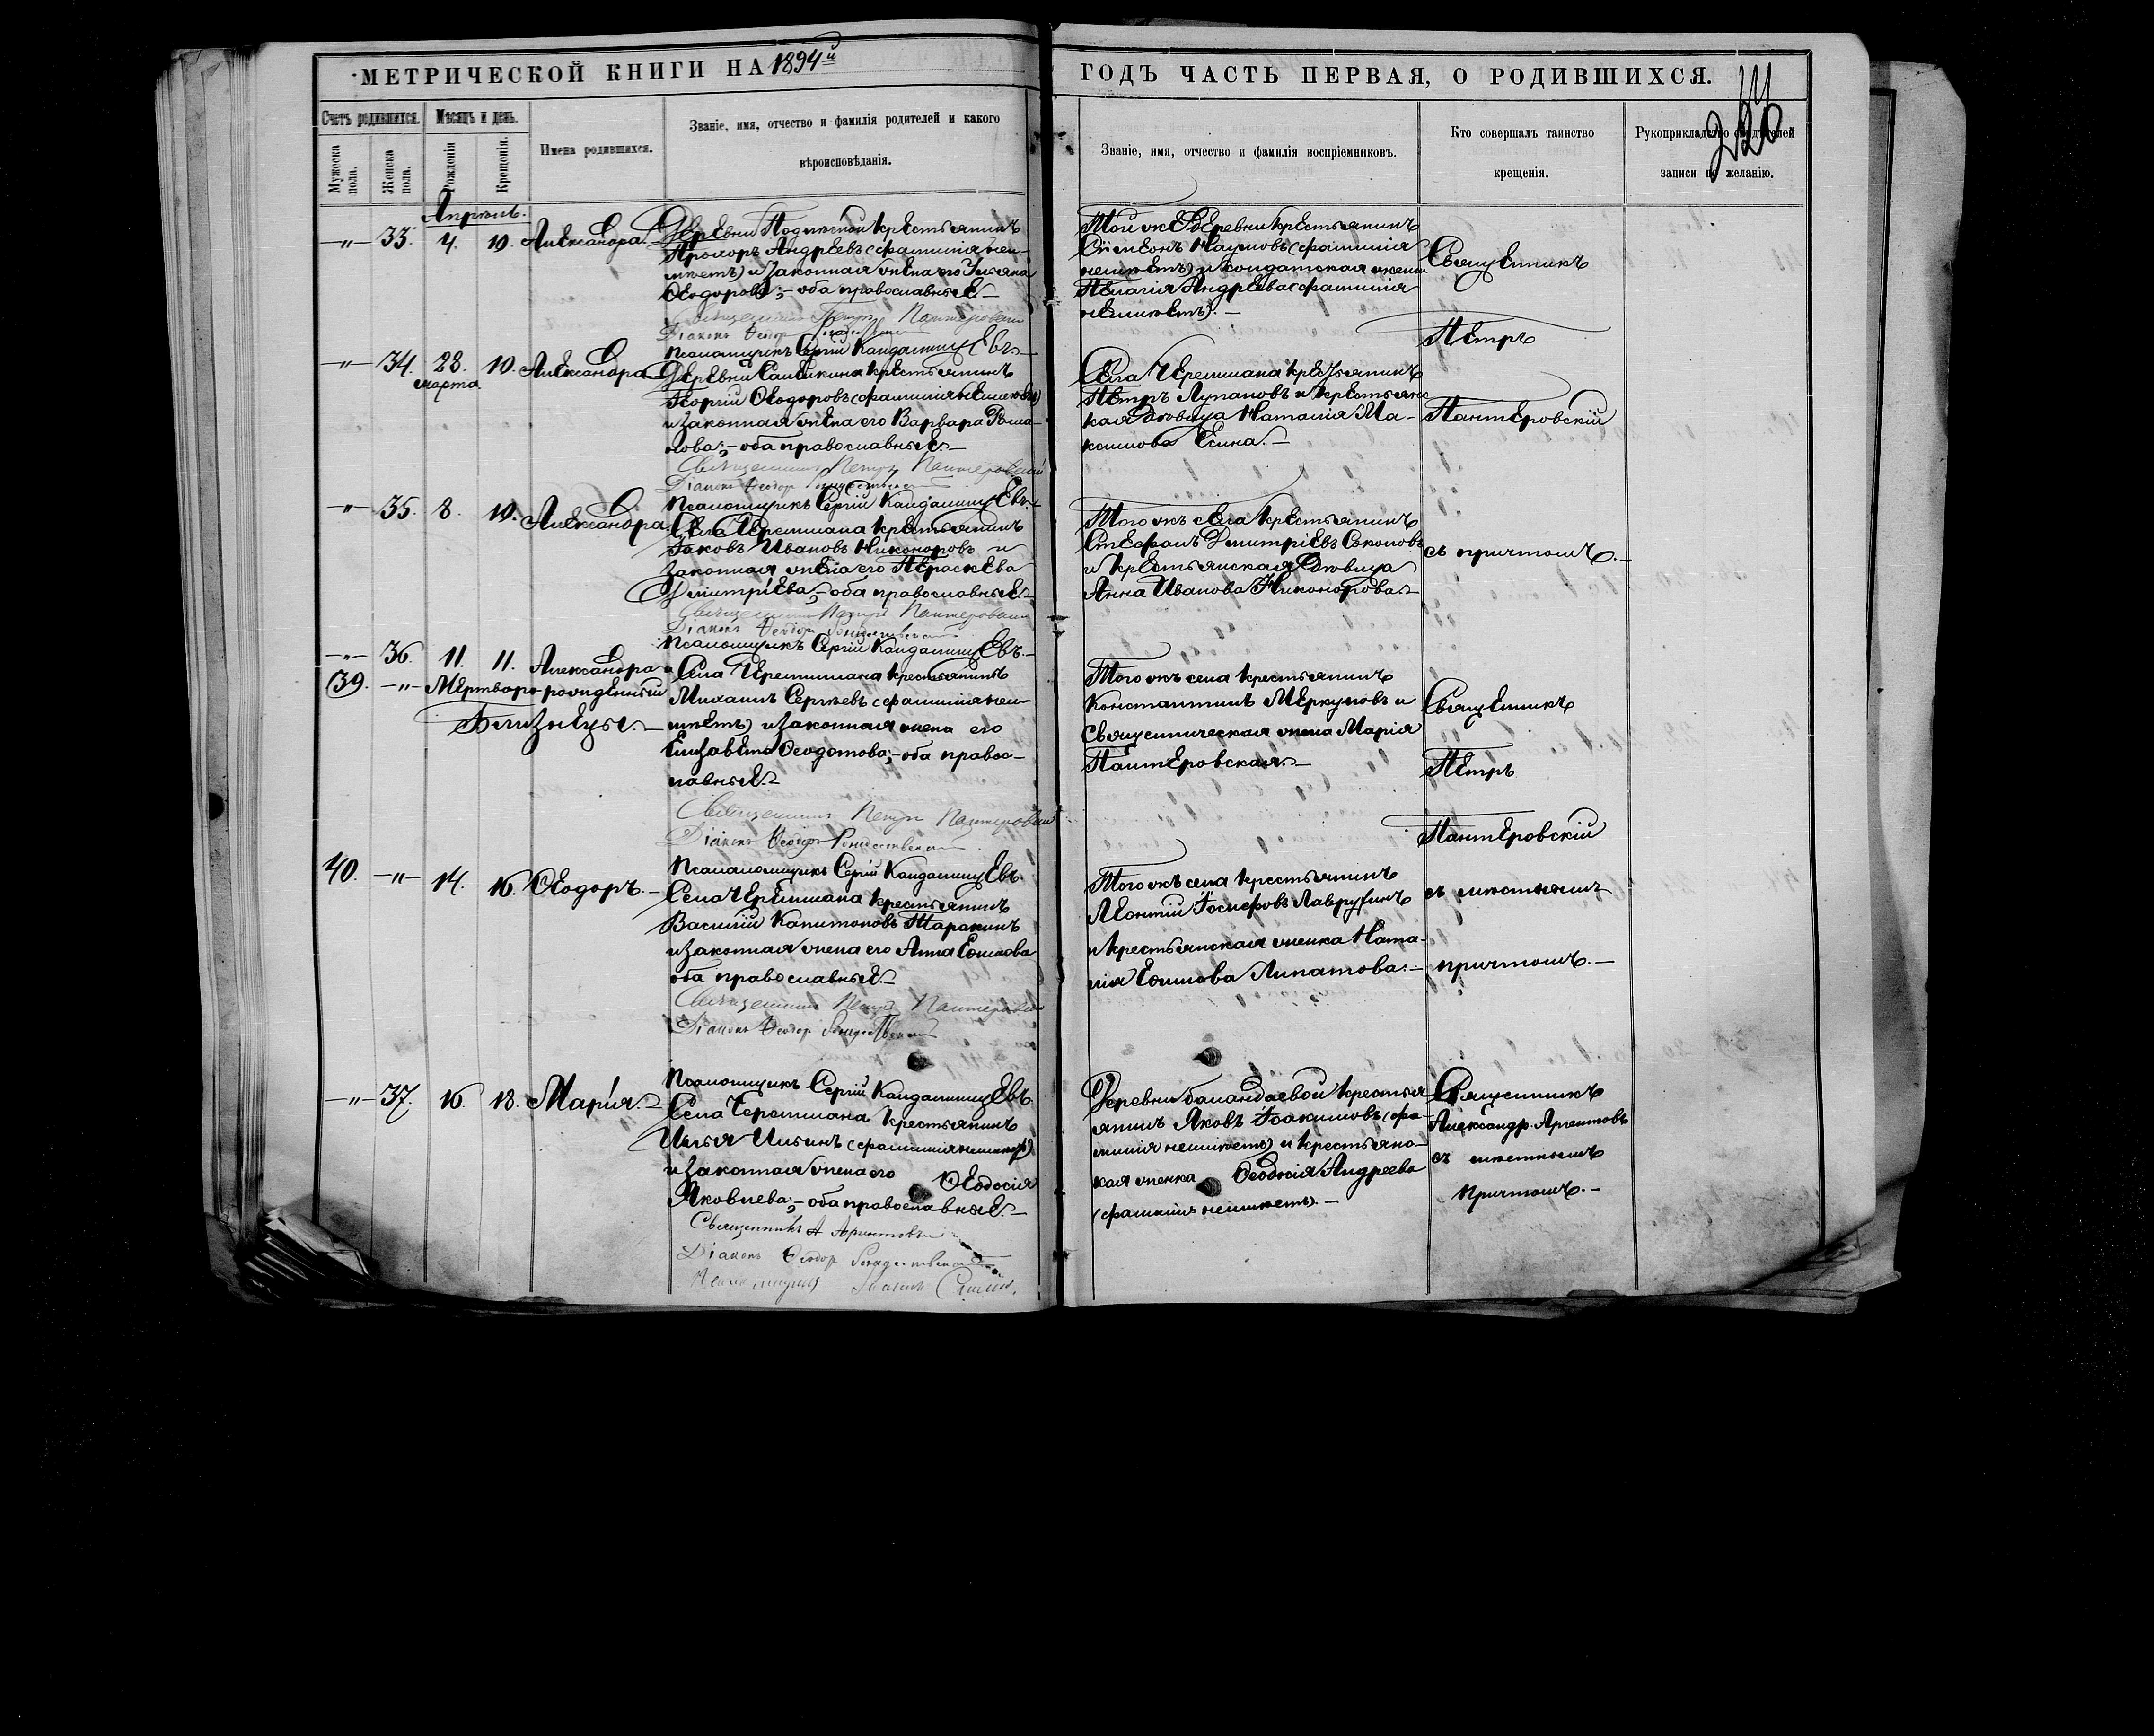 МЕТРИЧЕСКОЙ КНИГИ НА 1894й
ГОДЪ ЧАСТЬ ПЕРВАЯ, О РОДИВШИХСЯ.
Счетъ родившихся.
Мужеска пола.
Женска пола.
Мѣсяцъ и день.
Рожденія
Крещенія.
Имена родившихся.
Званіе, имя, отчество и фамилія родителей и какого
вѣроисповѣданія.
Званіе, имя, отчество и фамилія воспріемниковъ.
Кто совершалъ таинство
крещенія.
Рукоприкладство свидѣтелей
записи по желанію.
Апрѣль.
—"— 33. 4. 10. Александра.—
Деревни крестьянинъ
Прохоръ Андреевъ (фамилія неи-
мѣетъ) и законная жена его Ульяна
Ѳеодорова;— оба православные.—
Священникъ Петръ Пантеровскій
Діаконъ Ѳеодоръ Рождественскій
Псаломщикъ Сергій
Той же деревни крестьянинъ
Сѵмеонъ Наумовъ (фамилія
неимѣетъ) и солдатская жена
Пелагія Андреева (фамилія
неимѣетъ).—
Священникъ
Петръ
Пантеровскій
съ причтомъ.—
—"— 34. 28. 10. Александра
марта
Деревни крестьянинъ
Георгій Ѳеодоровъ (фамилія неимѣетъ)
и законная жена его Варвара
оба православные.—
Священникъ Петръ Пантеровскій
Діаконъ Ѳеодоръ Рождественскій
Псаломщикъ Сергій
Села Черемшана крестьянинъ
Петръ Лупановъ и крестьянс
кая дѣвица Наталія Ма-
ксимова Есина.—
—"— 35. 8. 10. Александра
Села Черемшана крестьянинъ
Іаковъ Ивановъ Никоноровъ и
законная жена его Параскева
Димитріева,— оба православные.—
Священникъ Петръ Пантеровскій
Діаконъ Ѳеодоръ Рождественскій
Псаломщикъ Сергій
Того жъ села крестьянинъ
Стефанъ Дмитріевъ Соколовъ
и крестьянская дѣвица
Анна Иванова Никонорова.—
—"— 36. 11. 11. Александра и
39. —"— Мертворожденный
Близнецы.—
Села Черемшана крестьянинъ
Михаилъ Сергѣевъ (фамилія неи-
мѣетъ) и законная жена его
Елизавета Ѳеодотова;— оба правос-
лавные.—
Священникъ Петръ Пантеровскій
Діаконъ Ѳеодоръ Рождественскій
Псаломщикъ Сергій
Того жъ села крестьянинъ
Константинъ Меркуловъ и
священническая жена Марія
Пантеровская.—
Священникъ
Петръ
Пантеровскій
съ мѣстнымъ
причтомъ.—
40. —"— 14. 16. Ѳеодоръ.—
Села Черемшана крестьянинъ
Василій Капитоновъ Таракинъ
и законная жена его Анна
оба православные.—
Священникъ Петръ Пантеровскій
Діаконъ Ѳеодоръ Рождественскій
Псаломщикъ Сергій
Того жъ села крестьянинъ
Леонтій Іосифовъ Лаврухинъ
и крестьянская женка Ната-
лія Ефимова Липатова.—
—"— 37. 16. 18. Марія.—
Села Черемшана крестьянинъ
Илья Ильинъ (фамилія неимѣетъ)
и законная жена его Ѳеодосія
Яковлева;— оба православные.—
Священникъ А Аргентовъ
Діаконъ Ѳеодоръ Рождественскій
Псаломщикъ
Деревни Баландаевой крестья
янинъ Яковъ Іоакимовъ (фа-
милія неимѣетъ) и крестьянс-
кая женка Ѳеодосія Андреева
(фамиліи неимѣетъ).—
Священникъ
Александръ Аргентовъ
съ мѣстнымъ
причтомъ.—